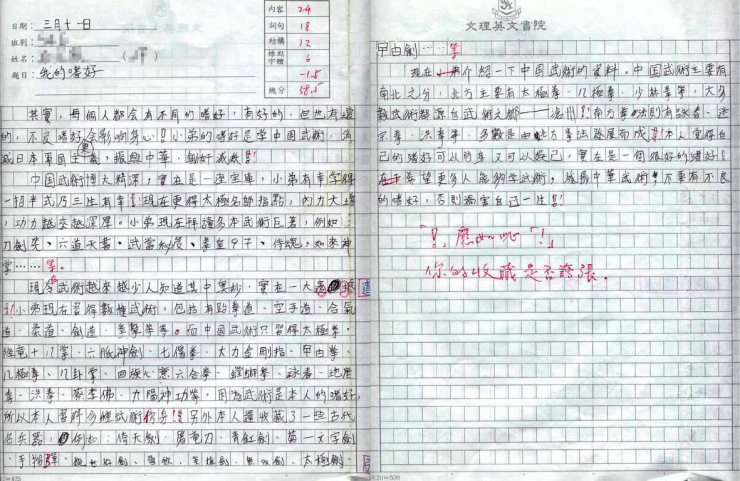 日期：三月十一日
班別：
姓名：
題目：我的嗜好
內容 24
詞句 18
結構 12
標點字體 6
-1.5
總分 58.5
其實，每個人都會有不同的嗜好，有好的，但也有壞
的，不良嗜好會影响身心！小弟的嗜好是学中国武術，消
滅日本軍国主義，振興中华，
中国武術博大精深，實在是一座宝庫，小弟有幸学得
一招半式乃三生有幸！現在更得太極名師指點，內力大增
，功力越來越深厚。小弟現在拜讀多本武術巨著，例如：
刀劍笑、六道天書、武當秘笈、拳皇97、傳說，如來神
掌……等。
現今武術越來越少人知道其中奧妙，實在一大遺憾
！小弟現在習得數種武術，包括有跆拳道、空手道、合氣
道、柔道、劍道、拳擊等等。而中国武術只習得太極拳、
降龍十八掌、六脈神劍、七傷拳、大力金剛指、
八極拳、八卦掌、心意六合拳、螳螂拳、詠春、地
拳、洪拳、蔡李佛、九陽神功等，因為武術是本人的嗜好，
所以本人習許多種武術防身！另外本人還收藏了一些古代
名兵器，例如：倚天劍、屠龍刀、青釭劍、
太極劍、
文理英文書院
……等
現在介紹一下中国武術的資料，中国武術主要有
南北之分，北方主要有太極拳、八極拳、少林拳等，大多
數武術都源自武術之鄉——滄州！南方拳法則有詠春、
洪拳等，本人覺得自
己的嗜好可以防身又可以娛己，實在是一個很好的嗜好！
希望更多人能夠学武術，發揚中華武術！不要有不良
的嗜好，否則禍害自己一生！
「！」應如此「！」
你的收藏是否誇張。
20=500